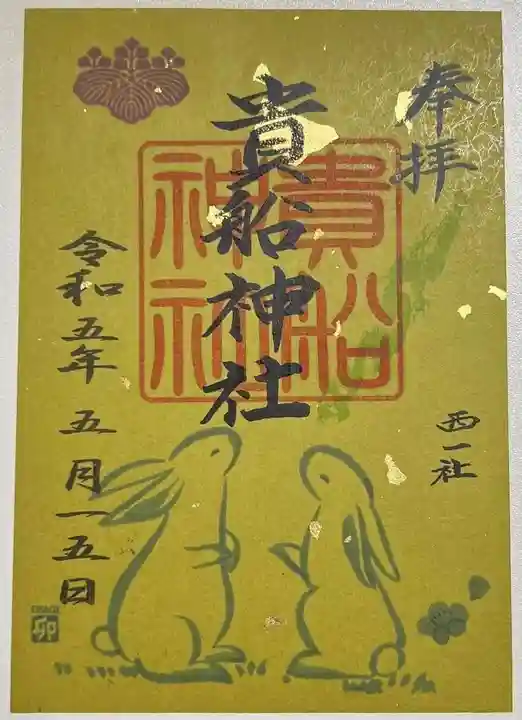 奉拝
西一社
貴船神社
貴船
神社
令和五年 五月一五日
USAGI
卯